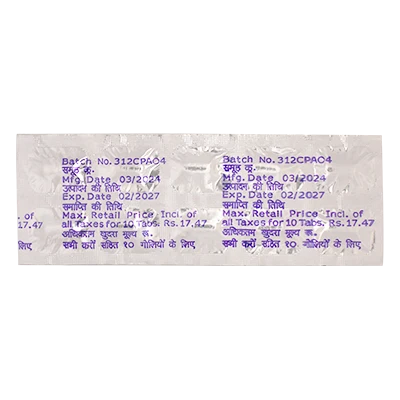 Batch No.312CPA04 Batch No.312CPA04
समूह क्र. समूह क्र.
Mfg.Date 03/2024 Mfg.Date 03/2024
उत्पादन की तिथि उत्पादन की तिथि
Exp.Date 02/2027 Exp.Date 02/2027
समाप्ति की तिथि समाप्ति की तिथि
of Max. Retail Price Incl. of Max. Retail Price Incl. of
s.17.47 all Taxes for 10 Tabs. Rs.17.47 all Taxes for 10 Tabs. Rs.17.47
अधिकतम खुदरा मूल्य रू. अधिकतम खुदरा मूल्य रू.
के लिए सभी करों सहित १० गोलियों के लिए सभी करों सहित १० गोलियों के लिए